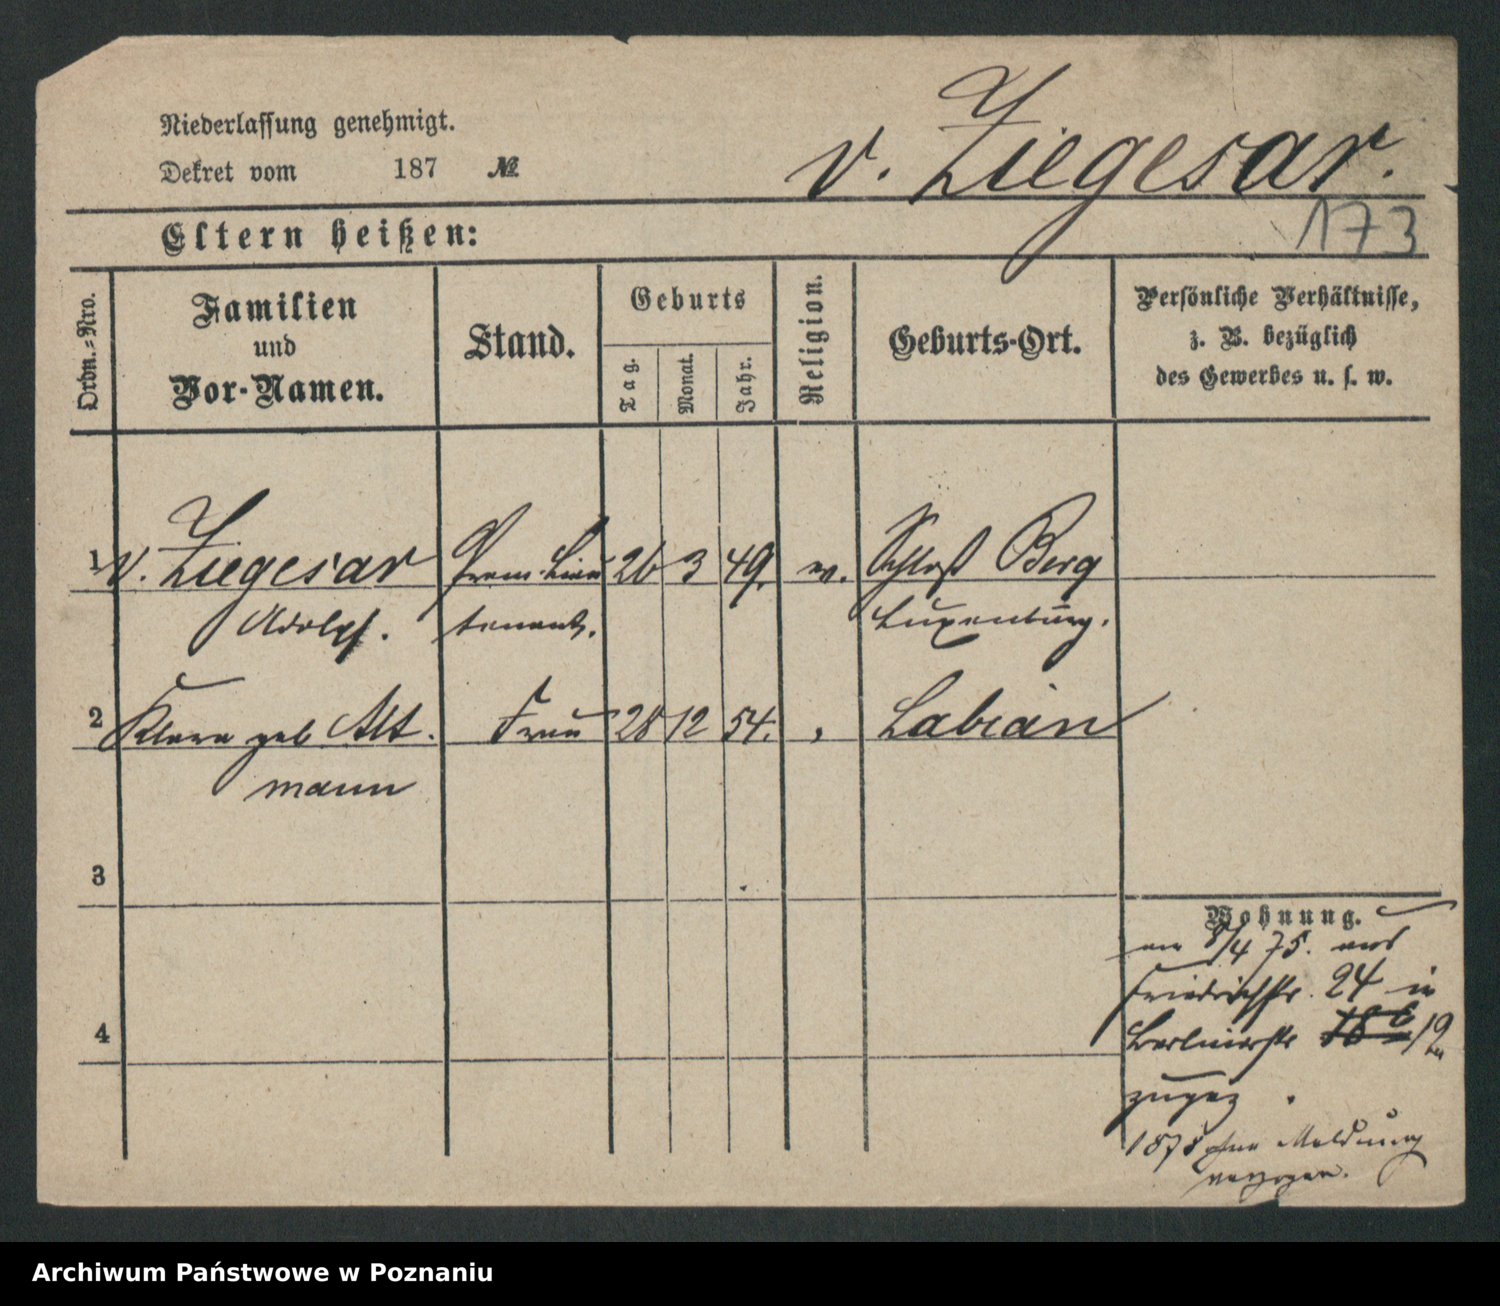 Niederlassung genehmigt.
Dekret vom 187 №
v. Ziegesar.
173
Eltern heißen:
Ordn.-Nro.
Familien
und
Vor-Namen.
Stand.
Geburts
Tag.
Monat.
Jahr.
Religion.
Geburts-Ort.
Persönliche Verhältnisse,
z. B. bezüglich
des Gewerbes u. s. w.
1 v. Ziegesar Prem. Lieu 26 3 49. ev. Schloß Berg
Adolph. tenant. Luxenburg.
2 Klara geb Alt Frau 28 12 54. Labiau
mann
3
4
Wohnung.
8/4 75.
Friedrichstr. 24 in
Berlinerstr 18 19
zugez
1878 ohne Meldung
verzogen.
Archiwum Państwowe w Poznaniu